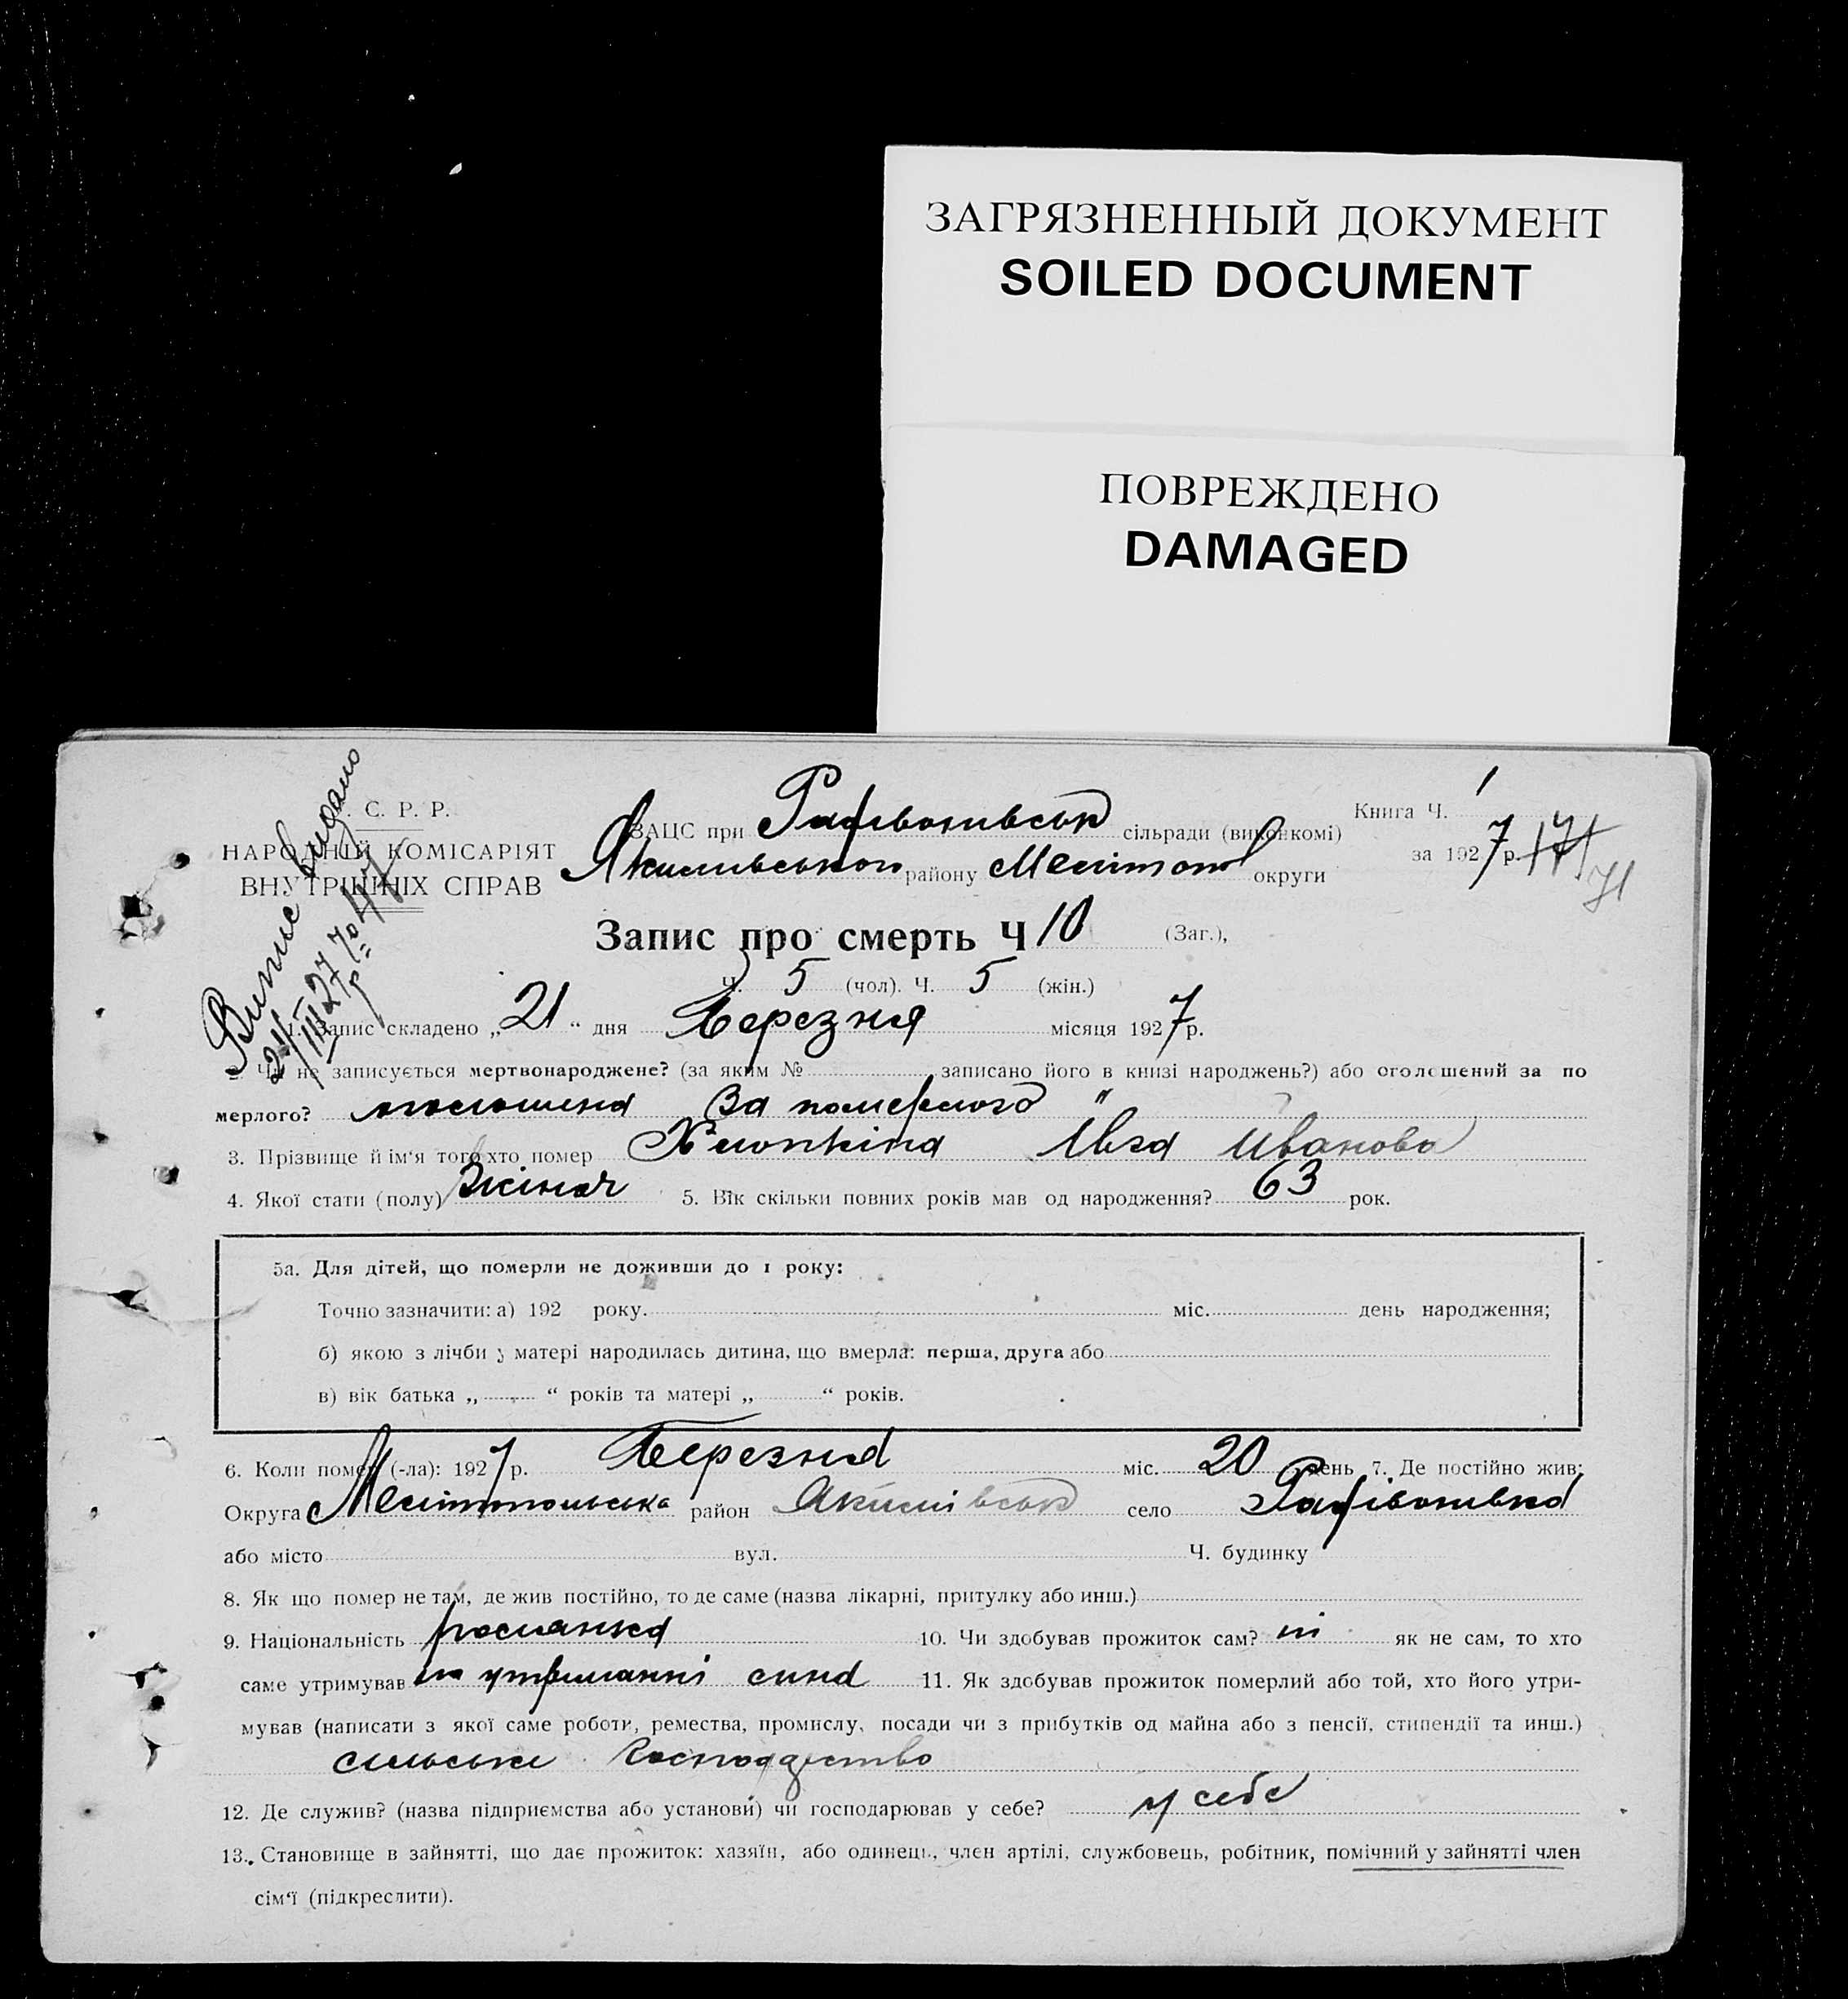 ЗАГРЯЗНЕННЫЙ ДОКУМЕНТ
SOILED DOCUMENT
ПОВРЕЖДЕНО
DAMAGED
С. Р. Р.
НАРОДНІЙ КОМІСАРІЯТ
ВНУТРІШНІХ СПРАВ
Випис видано
ЗАЦС при сільради (виконкомі)
району Мелітоп округи
Книга Ч. 1
за 1927 р. 171
71
Запис про смерть Ч 10 (Заг.),
Ч. 5 (чол). Ч. 5 (жін.)
Запис складено „21“ дня Березня місяця 1927 р.
2. Чи не записується мертвонароджене? (за яким № записано його в книзі народжень?) або оголошений за по
мерлого? За померлого
3. Прізвище й ім'я того хто помер Ивановa
4. Якої стати (полу) жіноч 5. Вік скільки повних років мав од народження? 63 рок.
5а. Для дітей, що померли не доживши до 1 року:
Точно зазначити: а) 192 року. міс. день народження;
б) якою з лічби у матері народилась дитина, що вмерла: перша, друга або
в) вік батька „ “ років та матері „ “ років.
6. Коли помер (-ла): 1927 р. Березня міс. 20 день 7. Де постійно жив:
Округа Мелітопольська район Якимівськ село
або місто вул. Ч. будинку
8. Як що помер не там, де жив постійно, то де саме (назва лікарні, притулку або инш.)
9. Національність росіянка 10. Чи здобував прожиток сам? ні як не сам, то хто
саме утримував на утриманні сина 11. Як здобував прожиток померлий або той, хто його утри-
мував (написати з якої саме роботи, ремества, промислу, посади чи з прибутків од майна або з пенсії, стипендії та инш.)
сильське господарство
12. Де служив? (назва підприємства або установи) чи господарював у себе? у себе
13. Становище в зайнятті, що дає прожиток: хазяїн, або одинець, член артілі, службовець, робітник, помічний у зайнятті член
сім'ї (підкреслити).